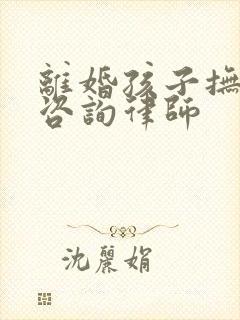 離婚孩子撫
咨詢律師
沈麗娟